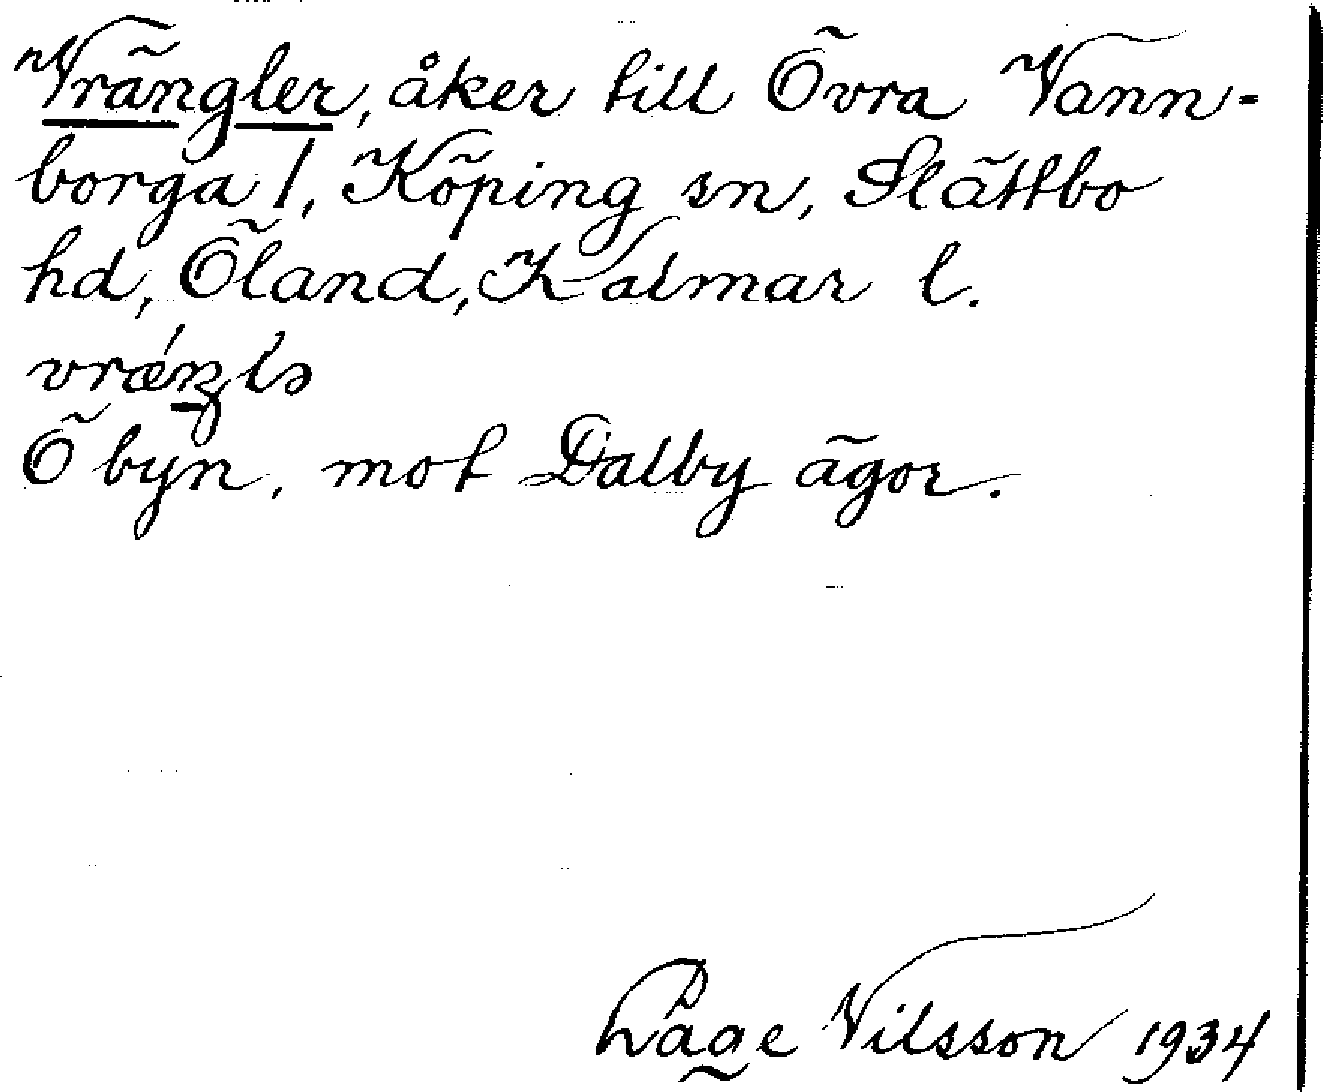 Vrängler, åker till Övra Vann-
borga 1, Köping sn, Slättbo
hd, Öland, Kalmar l.
vrǽŋlə
Ö byn, mot Dalby ägor.
Låge Nilsson 1934